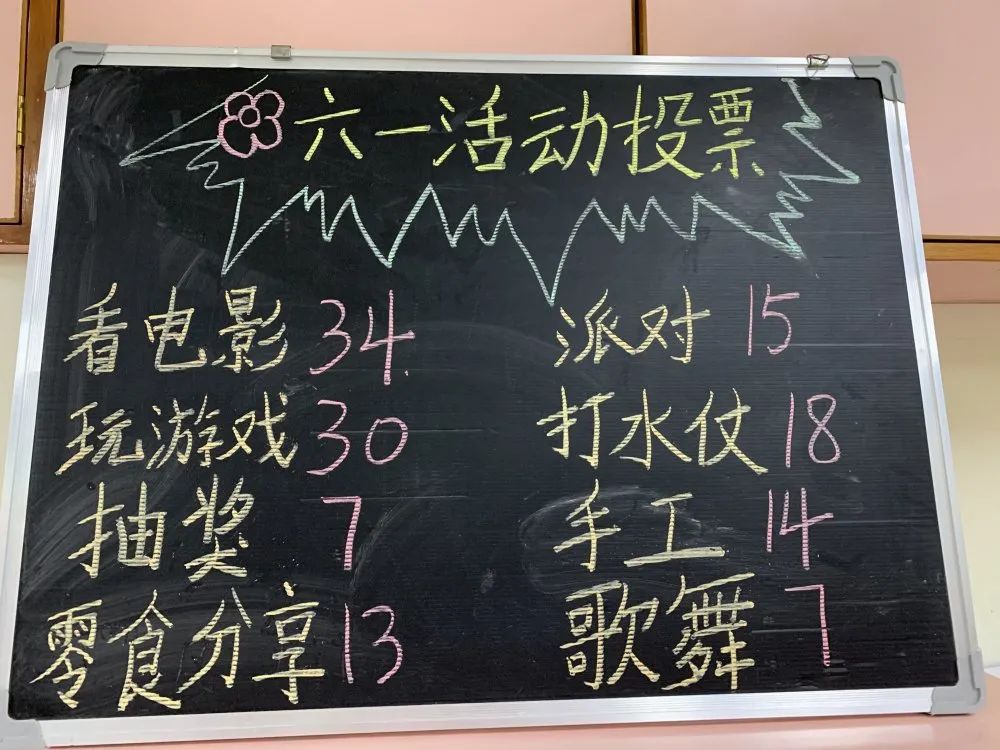 六一活动投票
看电影 34 派对 15
玩游戏 30 打水仗 18
抽奖 7 手工 14
零食分享 13 歌舞 7